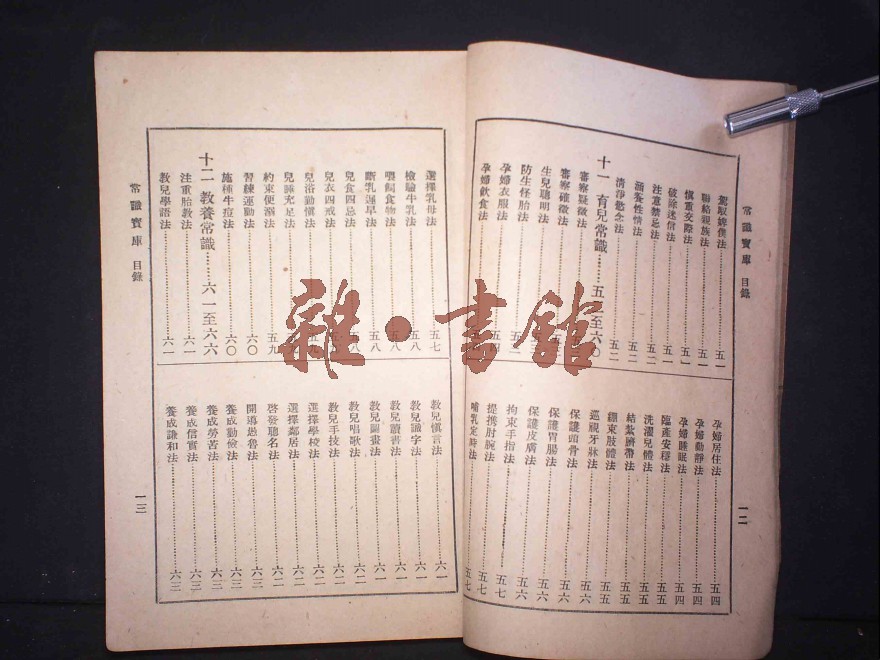 常識寶庫 目錄
駕馭婢僕法……五一
聯絡親族法……五一
慎重交際法……五一
破除迷信法……五一
注意禁忌法……五二
涵養性情法……五二
清淨慾念法……五二
十一 育兒常識……五二至六〇
審察疑徵法
審察確徵法
生兒聰明法
防生怪胎法
孕婦衣服法
孕婦飲食法
孕婦居住法……五四
孕婦動靜法……五四
孕婦睡眠法……五四
臨產安穩法……五五
洗濯兒體法……五五
結紮臍帶法……五五
綳束肢體法……五五
巡視牙牀法……五六
保護頭骨法……五六
保護胃腸法……五六
保護皮膚法……五六
拘束手指法……五七
提携肘腕法……五七
哺乳定時法……五七
一二
常識寶庫 目錄
選擇乳母法……五七
檢驗牛乳法……五八
喂飼食物法……五八
斷乳遲早法……五八
兒食四忌法……五八
兒衣四戒法
兒浴勤慎法……五九
兒睡充足法……五九
約束便溺法……五九
習練運動法……六〇
施種牛痘法……六〇
十二 教養常識……六一至六六
注重胎教法……六一
教兒學語法……六一
教兒慎言法……六一
教兒識字法……六一
教兒讀書法……六一
教兒圖畫法……六一
教兒唱歌法……六二
教兒手技法……六二
選擇學校法……六二
選擇鄰居法……六二
啓發聰名法……六二
開導愚魯法……六三
養成勤儉法……六三
養成勞苦法……六三
養成信實法……六三
養成謙和法……六三
一三
雜·書舘